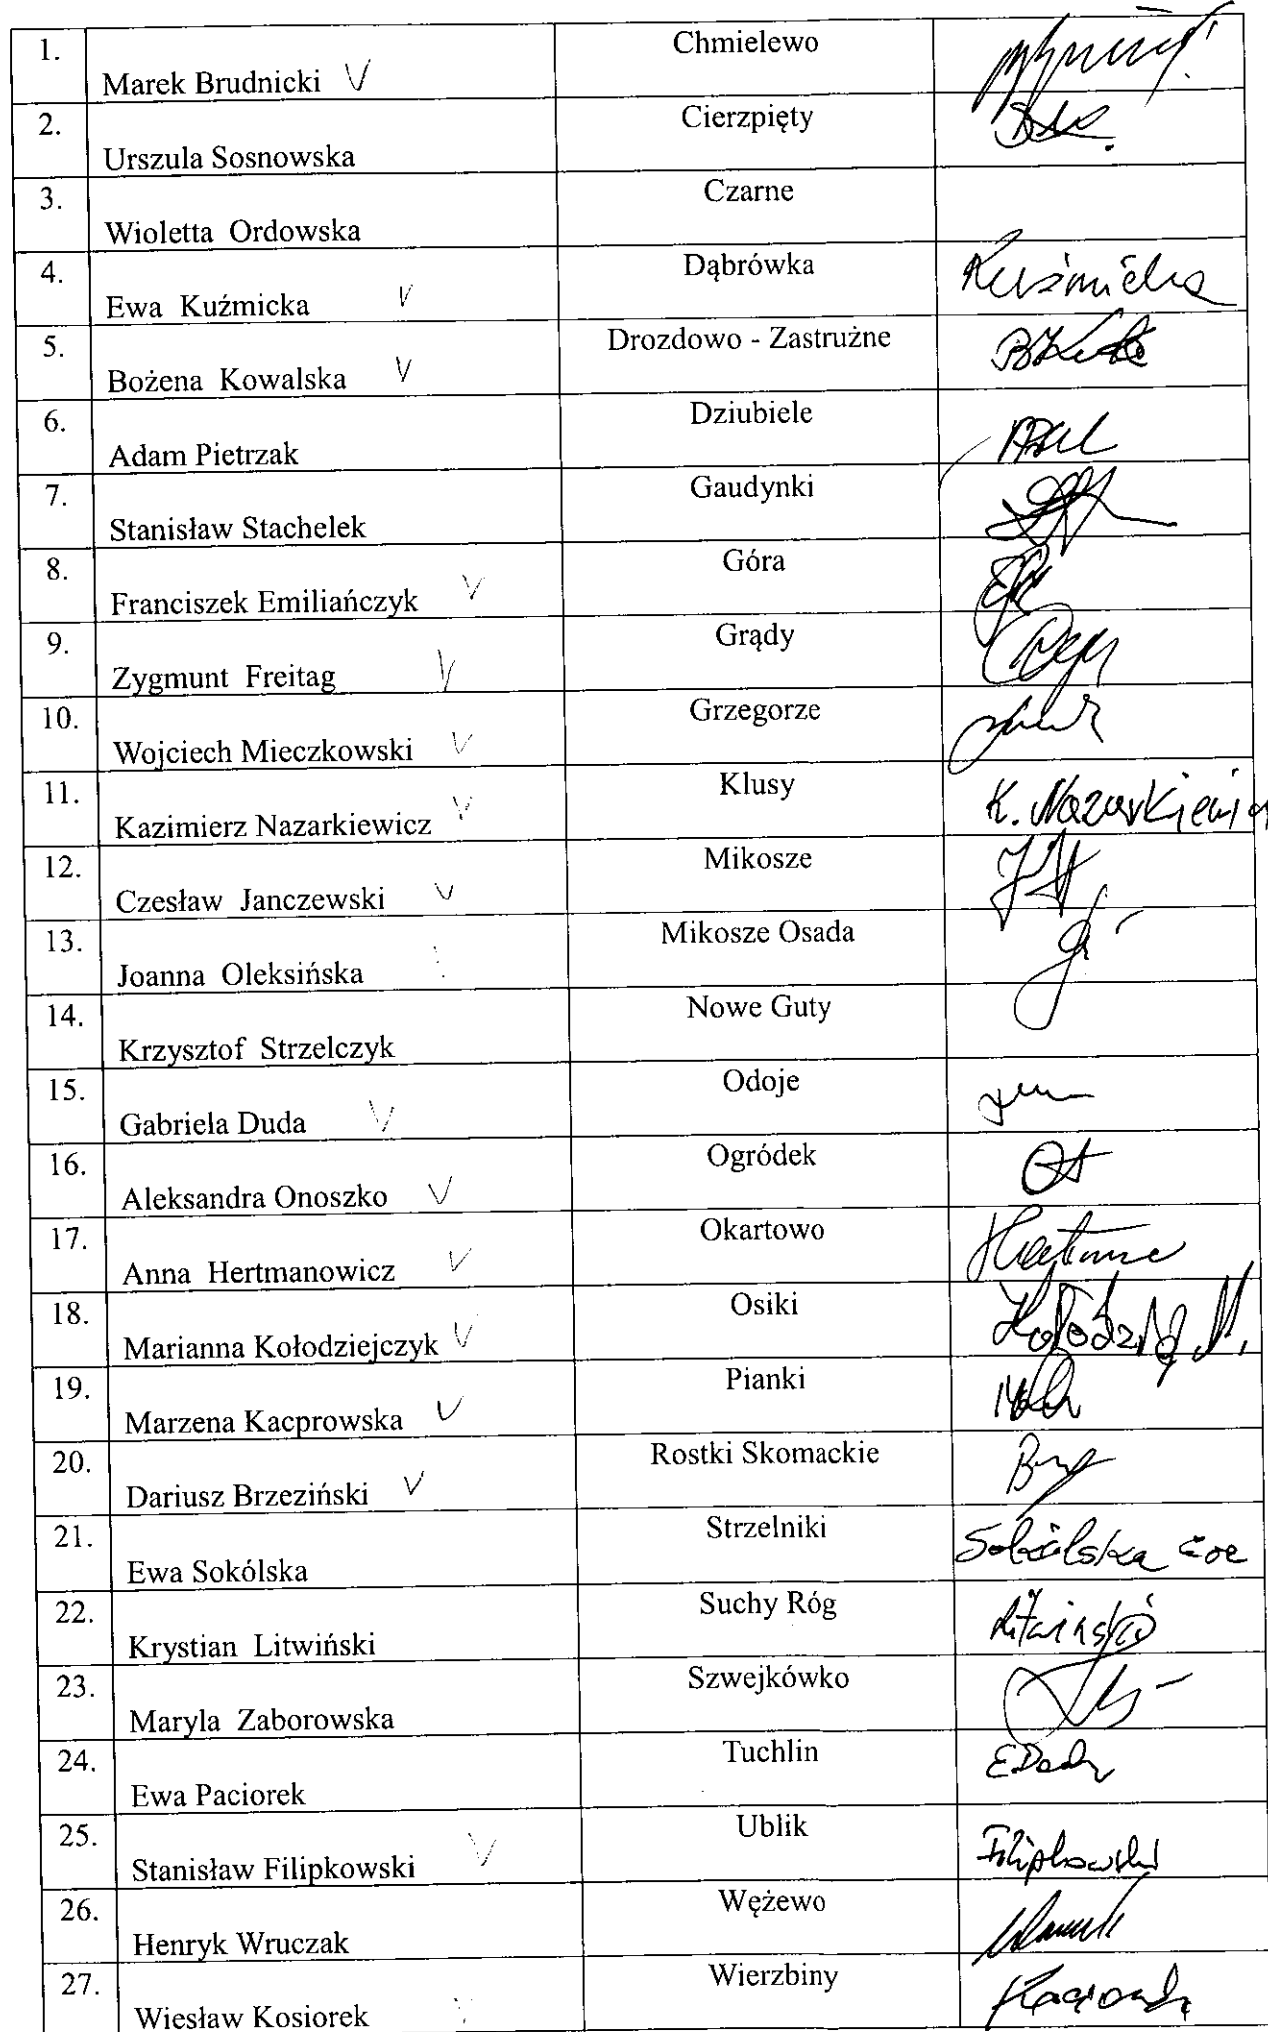 1. Marek Brudnicki V Chmielewo
2. Urszula Sosnowska Cierzpięty
3. Wioletta Ordowska Czarne
4. Ewa Kuźmicka V Dąbrówka Kuźmicka
5. Bożena Kowalska V Drozdowo - Zastrużne
6. Adam Pietrzak Dziubiele
7. Stanisław Stachelek Gaudynki
8. Franciszek Emiliańczyk V Góra
9. Zygmunt Freitag V Grądy
10. Wojciech Mieczkowski V Grzegorze
11. Kazimierz Nazarkiewicz V Klusy K. Nazarkiewicz
12. Czesław Janczewski V Mikosze
13. Joanna Oleksińska Mikosze Osada
14. Krzysztof Strzelczyk Nowe Guty
15. Gabriela Duda V Odoje
16. Aleksandra Onoszko V Ogródek
17. Anna Hertmanowicz V Okartowo
18. Marianna Kołodziejczyk V Osiki
19. Marzena Kacprowska V Pianki
20. Dariusz Brzeziński V Rostki Skomackie
21. Ewa Sokólska Strzelniki Sokólska Ewa
22. Krystian Litwiński Suchy Róg Litwiński
23. Maryla Zaborowska Szwejkówko
24. Ewa Paciorek Tuchlin
25. Stanisław Filipkowski V Ublik Filipkowski
26. Henryk Wruczak Wężewo
27. Wiesław Kosiorek V Wierzbiny